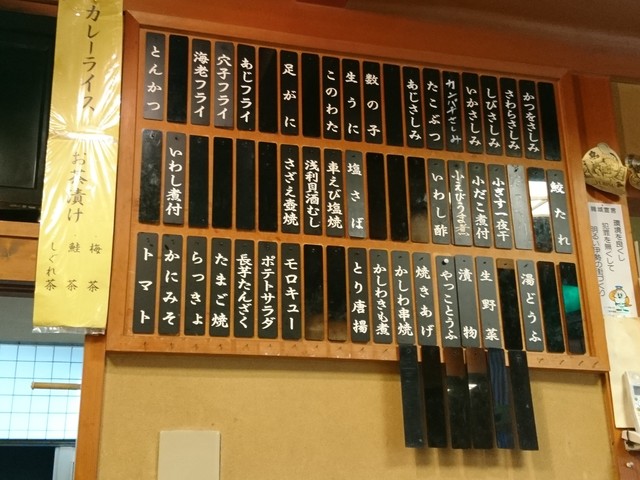 かつをさしみ
さわらさしみ
しびさしみ
いかさしみ
カンパチさしみ
たこぶつ
あじさしみ
数の子
生うに
このわた
足がに
あじフライ
穴子フライ
海老フライ
とんかつ
鮫たれ
小ぎす一夜干
小だこ煮付
小えびうま煮
いわし酢
塩さば
車えび塩焼
浅利貝酒むし
さざえ壺焼
いわし煮付
湯どうふ
生野菜
漬物
やっことうふ
焼きあげ
かしわ串焼
かしわきも煮
とり唐揚
モロキュー
ポテトサラダ
長芋たんざく
たまご焼
らっきょ
かにみそ
トマト
カレーライス
お茶漬け
梅茶
鮭茶
しぐれ茶
環境を良くし
犯罪を無くして
明るい伊勢の街づくり